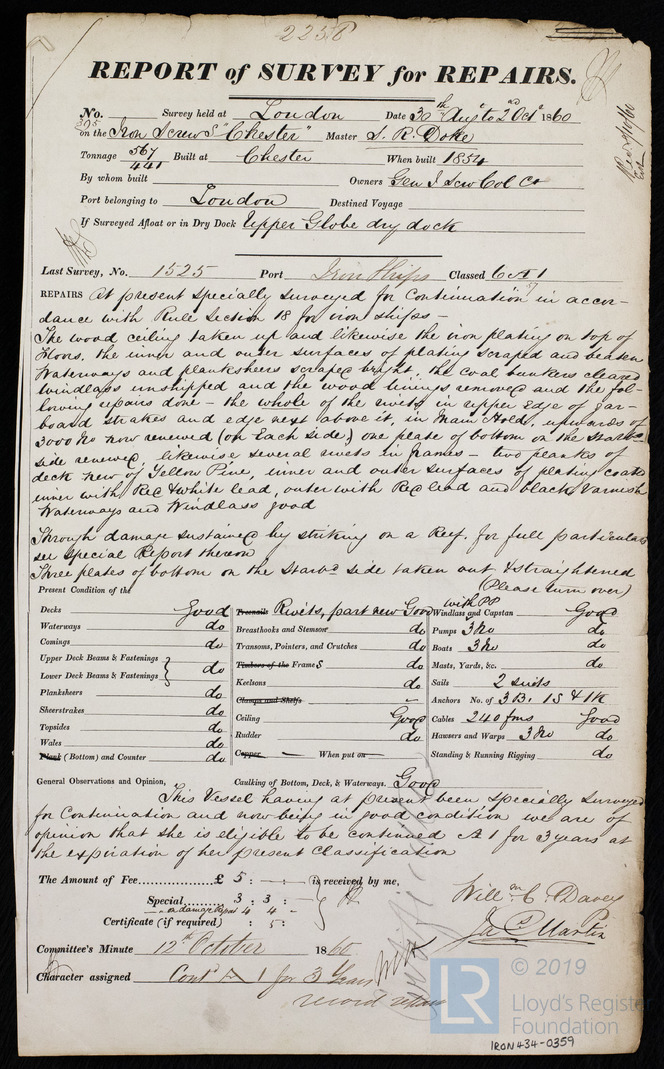 2258
REPORT of SURVEY for REPAIRS.
No. 305 Survey held at London Date 30th Augt to 2nd Octr 1860
on the Iron Screw S "Chester" Master S. R. Doke
Tonnage 567 / 441 Built at Chester When built 1854
By whom built Owners Genl I Scw Col Co
Port belonging to London Destined Voyage
If Surveyed Afloat or in Dry Dock Upper Globe dry dock
Last Survey, No. 1525 Port Iron Ships Classed 6 A 1
REPAIRS At present specially surveyed for Continuation in accor-
dance with Rule Section 18 for iron ships -
The wood ceiling taken up and likewise the iron plating on top of
Floors. the inner and outer surfaces of plating scraped and beaten
Waterways and planksheers scraped bright, the coal bunkers cleared
Windlass unshipped and the wood linings removed and the fol-
lowing repairs done - the whole of the rivets in upper edge of gar-
board strakes and edge next above it, in Main Hold, upwards of
3000 No now renewed (on Each side,) one plate of bottom on the Starbd
side renewed, likewise several rivets in frames - two planks of
deck new of Yellow Pine, inner and outer surfaces of plating coated
inner with Red & white lead, outer with Red lead and black Varnish
Waterways and Windlass good
Through damage sustained by striking on a Reef. for full particulars
see Special Report thereon
Three plates of bottom on the Starbd side taken out & straightened
(Please turn over)
Present Condition of the
Decks Good
Waterways do
Comings do
Upper Deck Beams & Fastenings
Lower Deck Beams & Fastenings } do
Planksheers do
Sheerstrakes do
Topsides do
Wales do
Plank (Bottom) and Counter do
Treenails Rivets, part new Good
Breasthooks and Stemson do
Transoms, Pointers, and Crutches do
Timbers of the Frames do
Keelsons do
Clamps and Shelfs
Ceiling Good
Rudder do
Copper When put on
with PP
Windlass and Capstan Good
Pumps 3 No do
Boats 3 No do
Masts, Yards, &c. do
Sails 2 suits
Anchors No. of 3 B. 1 S & 1 K
Cables 240 fms Good
Hawsers and Warps 3 No do
Standing & Running Rigging do
General Observations and Opinion, Caulking of Bottom, Deck, & Waterways. Good
This Vessel having at present been specially surveyed
for Continuation and now being in good condition we are of
opinion that she is eligible to be continued A 1 for 3 years at
the expiration of her present Classification
The Amount of Fee £ 5 : - : - (is received by me,
Special 3 : 3 : -
on damage repair 4 4 -
Certificate (if required) : 5 :
Willm C. Davey
Jas P Martin
Committee's Minute 12th October 1860
Character assigned Contd A 1 for 3 Years
record repairs
© 2019
LR
Lloyd's Register
Foundation
IRON434-0359